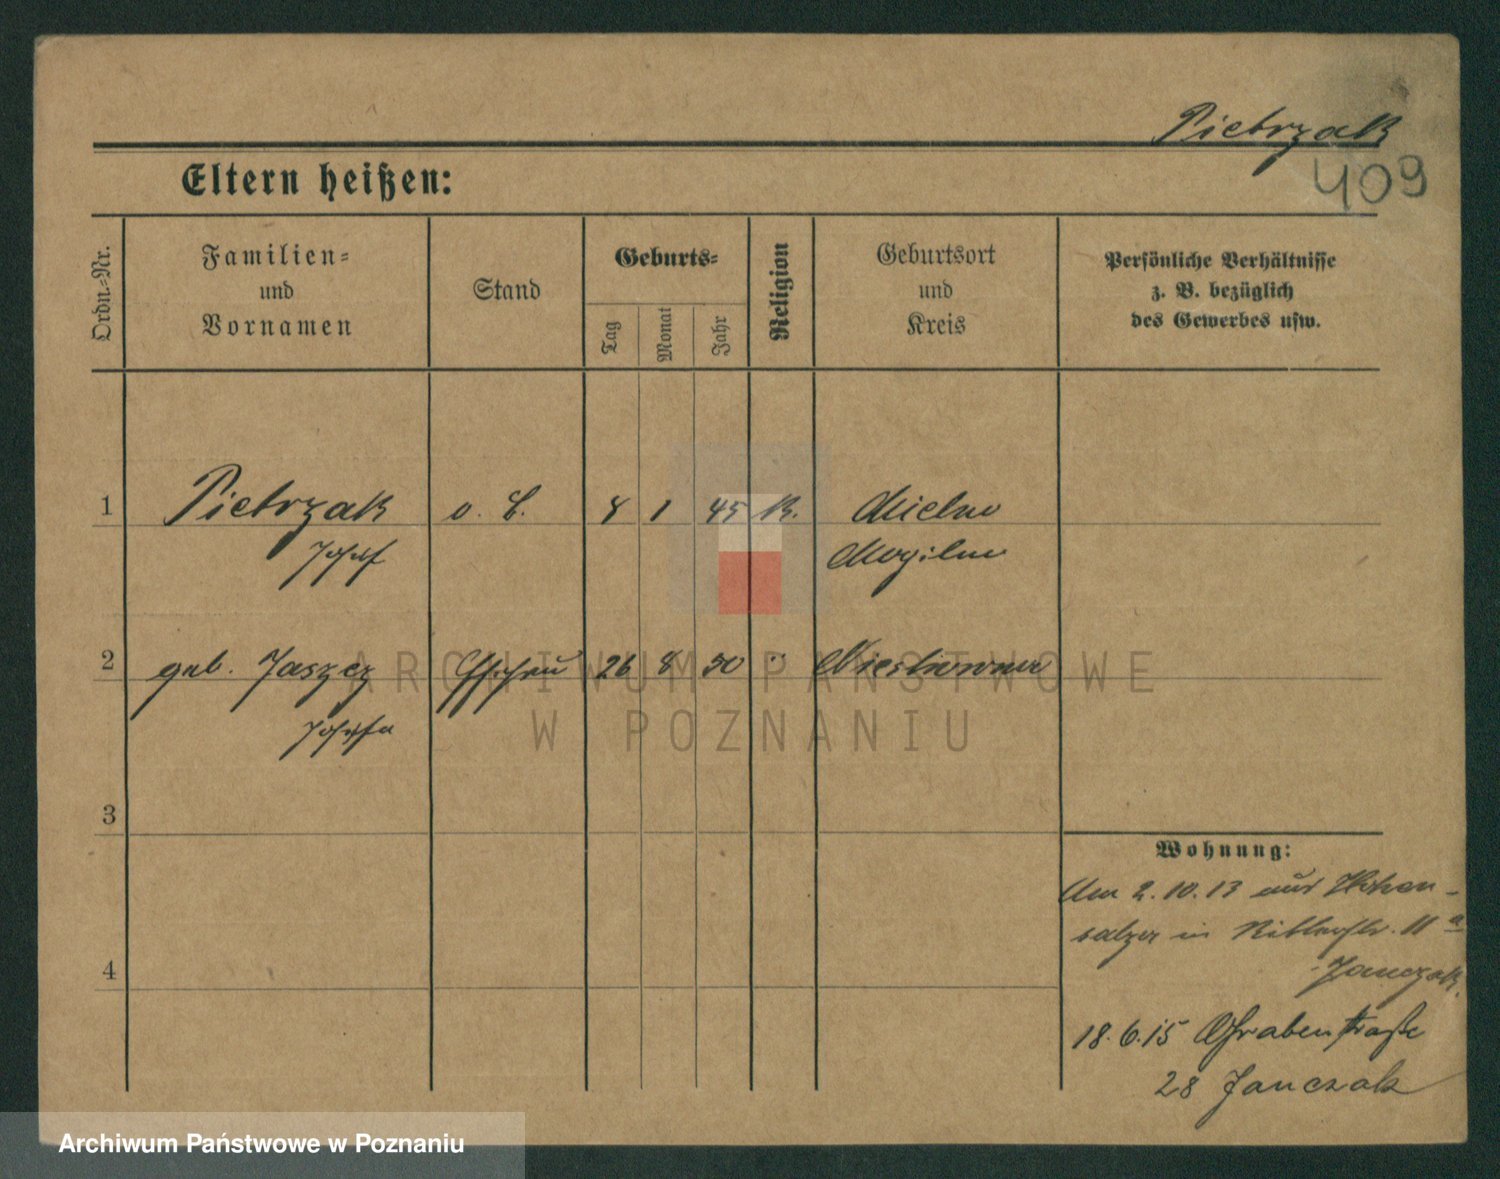 Pietrzak
409
Eltern heißen:
Ordn.-Nr.
Familien-
und
Vornamen
Stand
Geburts-
Tag
Monat
Jahr
Religion
Geburtsort
und
Kreis
Persönliche Verhältnisse
z. B. bezüglich
des Gewerbes usw.
1 Pietrzak o. B. 8 1 45 K. Mielno
Josef Mogilno
2 geb. Jaszcz Ehefrau 26 8 50 "
Josefa
3
4
Wohnung:
Am 2.10.13 aus Hohen-
salza in 11 a
Janczak.
18.6.15 Grabenstraße
28 Janczak
ARCHIWUM PAŃSTWOWE
W POZNANIU
Archiwum Państwowe w Poznaniu